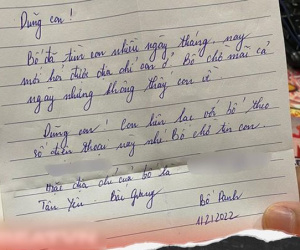 Dũng con!
Bố đã tìm con nhiều ngày tháng. nay
mới hỏi được địa chỉ con ở. Bố chờ mãi cả
ngày nhưng không thấy con về
Dũng con! Con liên lạc với bố theo
số điện thoại này nhé Bố chờ tin con.
Hoặc địa chỉ của bố là
Tân Yên. Bắc Giang
Bố
11/21/2022